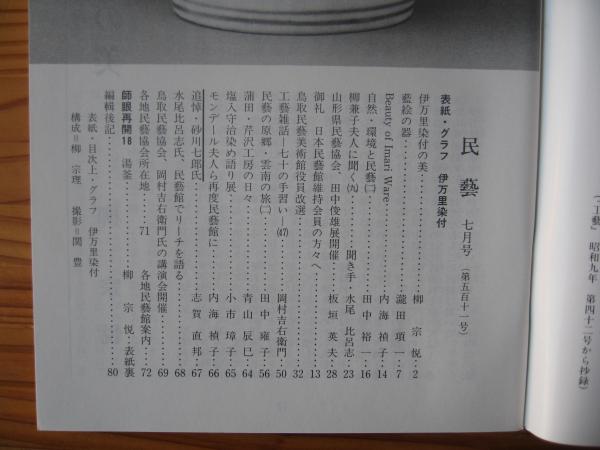 「工藝」昭和九年 第四十二号から抄録)
民藝 七月号(第五百十一号)
表紙・グラフ 伊万里染付
伊万里染付の美……柳 宗悦・2
藍絵の器……瀧田項一・7
Beauty of Imari Ware……内海禎子・14
自然・環境と民藝(二)……田中裕一・16
柳兼子夫人に聞く(九)……聞き手・水尾比呂志・23
山形県民藝協会、田中俊雄展開催……板垣英夫・28
御礼 日本民藝館維持会員の方々へ……13
鳥取民藝美術館役員改選……32
工藝雑話―七十の手習い―(47)……岡村吉右衛門・50
民藝の原郷・雲南の旅(二)……田中雍子・56
蒲田・芹沢工房の日々……青山辰巳・64
塩入守治染め語り展……小市璋子・65
モンデール夫人ら再度民藝館に……内海禎子・66
追悼・砂川七郎氏……志賀直邦・67
水尾比呂志氏、民藝館でリーチを語る……68
鳥取民藝協会、岡村吉右衛門氏の講演会開催……69
各地民藝協会所在地……71 各地民藝館案内……72
師眼再開18 湯釜……柳 宗悦・表紙裏
編輯後記……80
表紙・目次上・グラフ 伊万里染付
構成=柳 宗理 撮影=関 豊